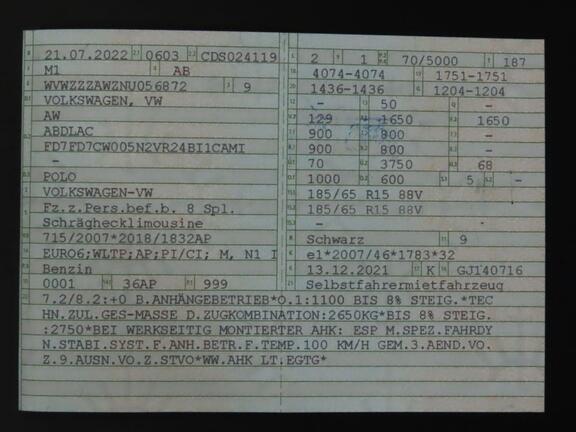 21.07.2022 0603 CDS024119
M1 AB
WVWZZZAWZNU056872 9
VOLKSWAGEN, VW
AW
ABDLAC
FD7FD7CW005N2VR24BI1CAMI
-
POLO
VOLKSWAGEN-VW
Fz.z.Pers.bef.b. 8 Spl.
Schräghecklimousine
715/2007*2018/1832AP
EURO6;WLTP;AP;PI/CI; M, N1 I
Benzin
0001 36AP 999
2 1 70/5000 187
4074-4074 1751-1751
1436-1436 1204-1204
- 50 -
129 1650 1650
900 800 -
900 800 -
70 3750 68
1000 600 5 -
185/65 R15 88V
185/65 R15 88V
-
Schwarz 9
e1*2007/46*1783*32
13.12.2021 K GJ140716
Selbstfahrermietfahrzeug
7.2/8.2:+0 B.ANHÄNGEBETRIEB*O.1:1100 BIS 8% STEIG.*TEC
HN.ZUL.GES-MASSE D.ZUGKOMBINATION:2650KG*BIS 8% STEIG.
:2750*BEI WERKSEITIG MONTIERTER AHK: ESP M.SPEZ.FAHRDY
N.STABI.SYST.F.ANH.BETR.F.TEMP.100 KM/H GEM.3.AEND.VO.
Z.9.AUSN.VO.Z.STVO*WW.AHK LT.EGTG*